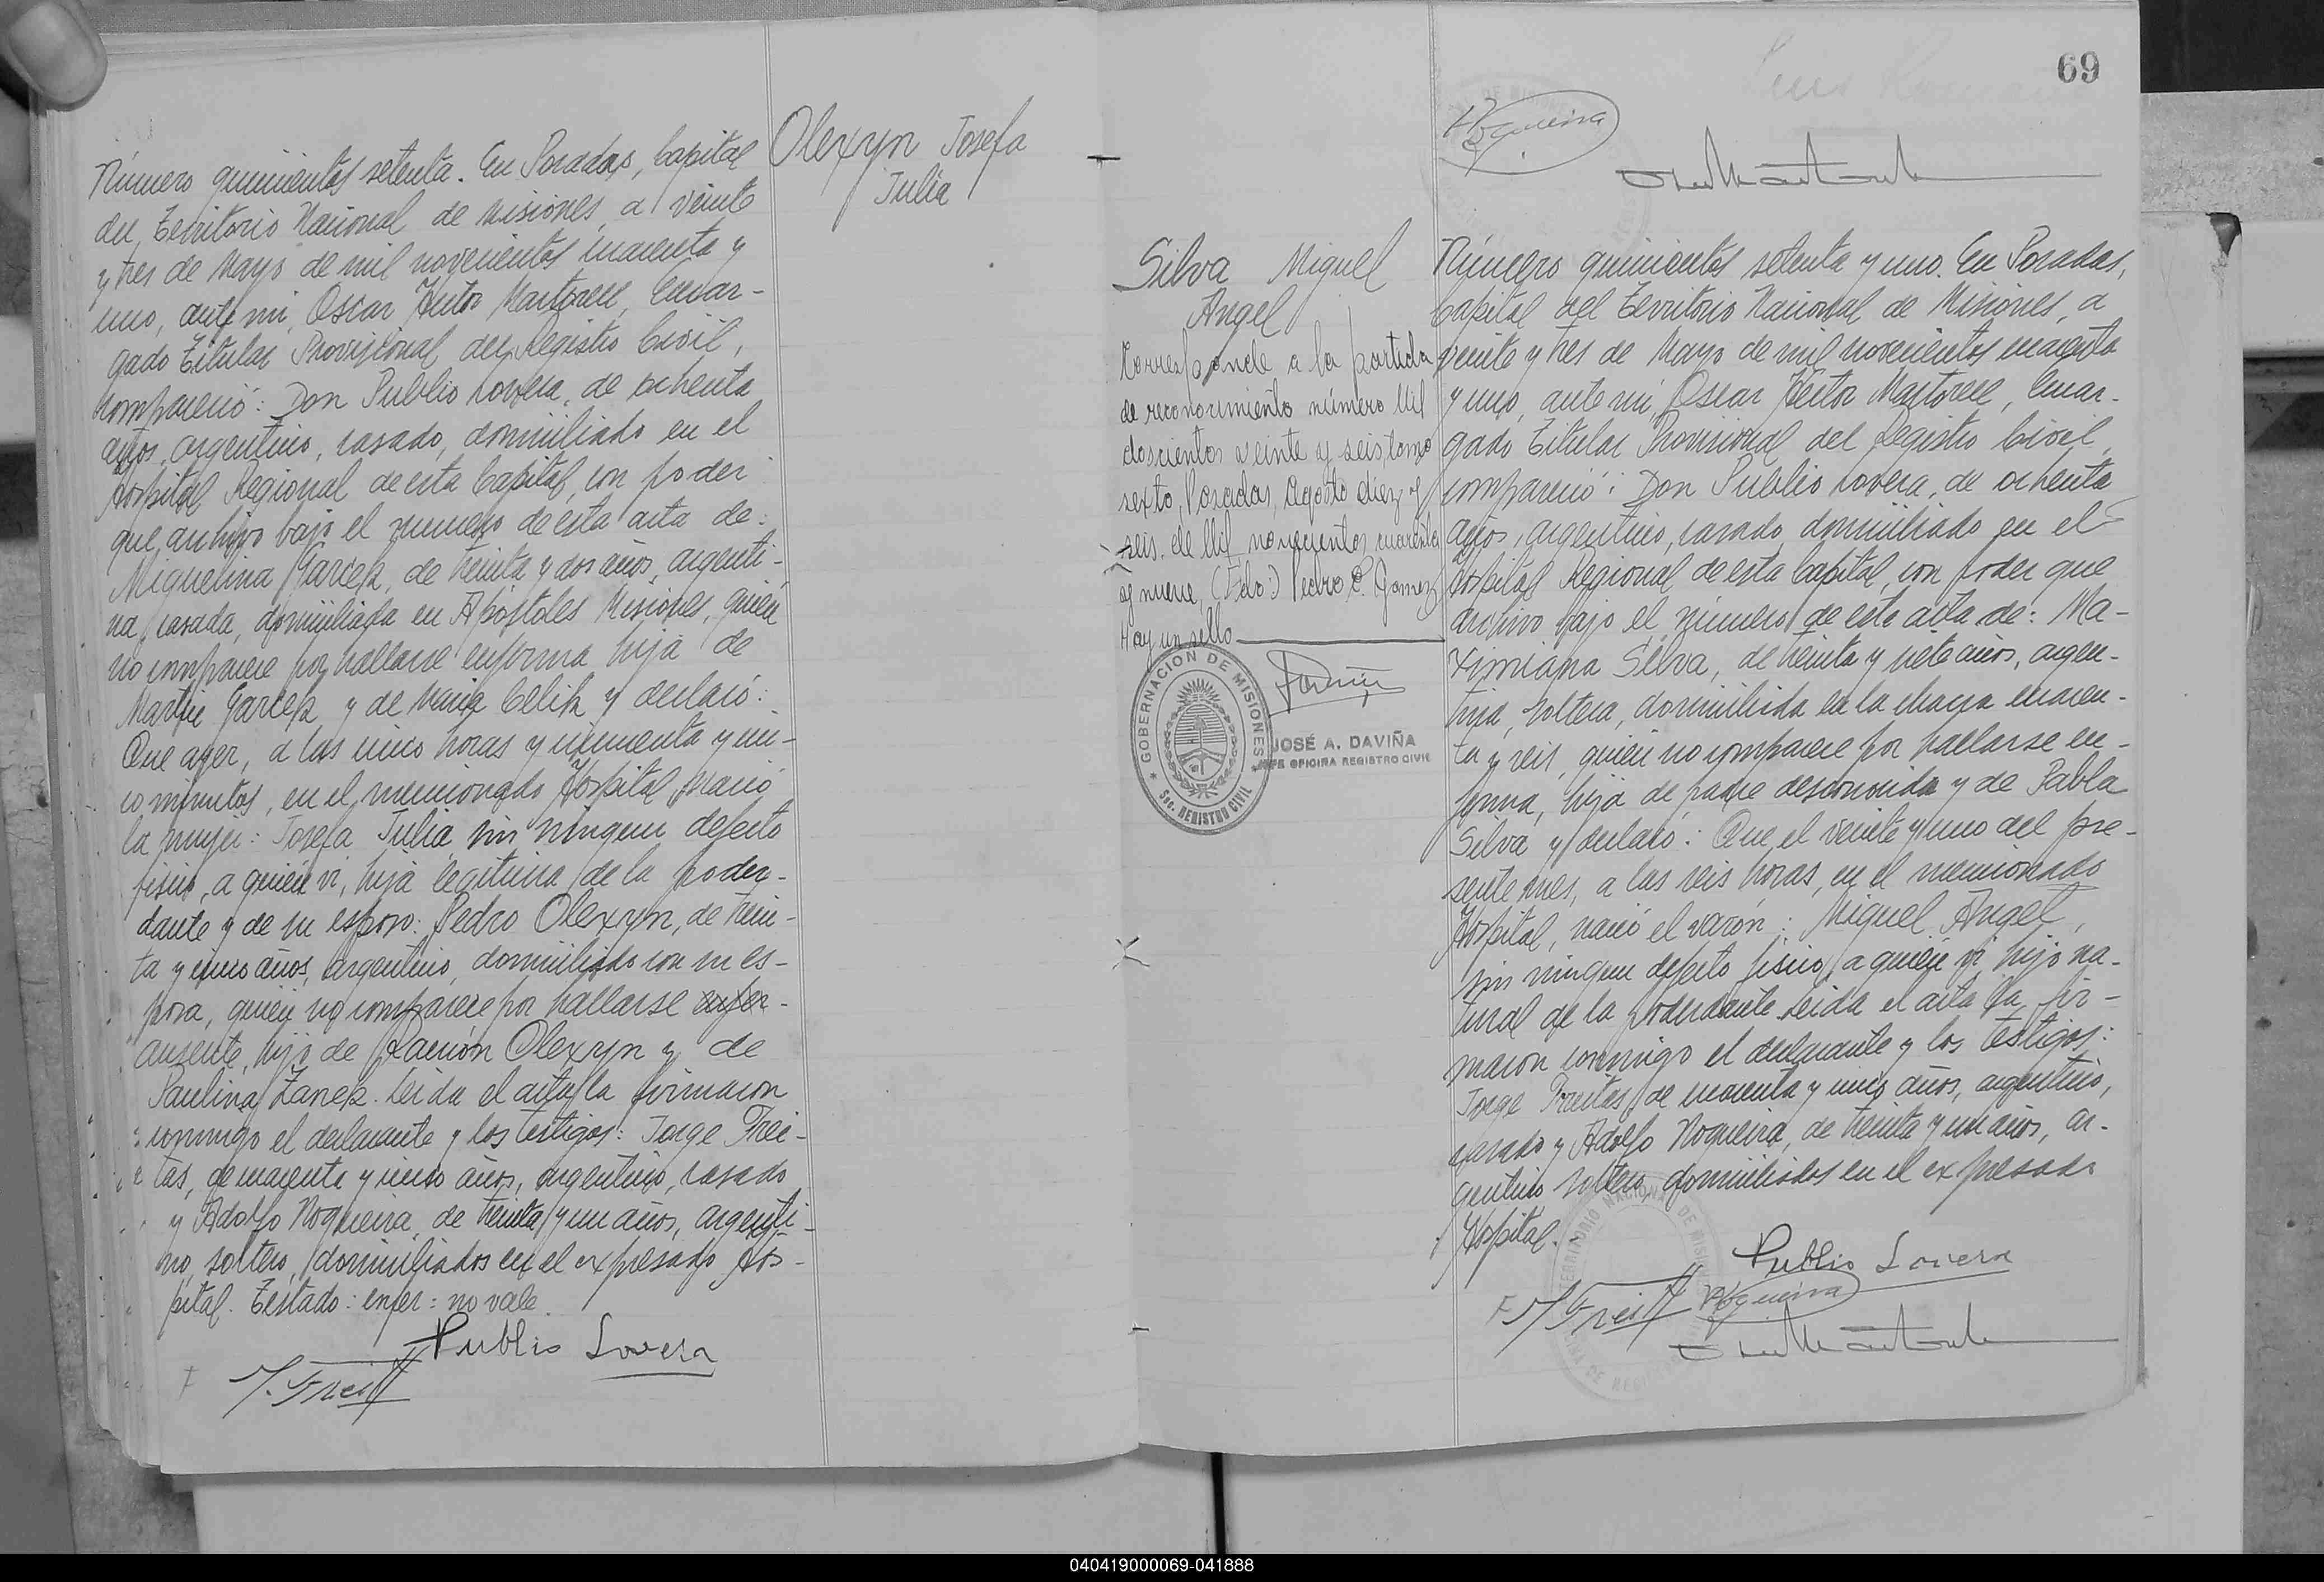 Número quinientos setenta. En Posadas, Capital
del Territorio Nacional de Misiones, a veinte
y tres de Mayo de mil novecientos cuarenta y
uno, ante mi, Oscar Héctor Martorell, Encar-
gado Titular Provisional del Registro Civil,
compareció: Don Publio Lovera, de ochenta
años, argentino, casado, domiciliado en el
Hospital Regional de esta Capital, con poder
que archivo bajo el número de esta acta de:
Miguelina Garcek, de treinta y dos años, argenti-
na, casada, domiciliada en Apóstoles Misiones, quién
no comparece por hallarse enferma, hija de
Martin Garcek y de Maria Celik y declaró:
Que ayer, a las cinco horas y cincuenta y cin-
co minutos, en el mencionado Hospital, nació
la mujer: Josefa Julia, sin ningun defecto
fisico, a quién vi, hija legitima de la poder-
dante y de su esposo: Pedro Olexyn, de trein-
ta y cinco años, argentino, domiciliado con su es-
posa, quién no comparece por hallarse enfer-
ausente, hijo de Ramón Olexyn y de
Paulina Zanek. Leida el acta la firmaron
conmigo el declarante y los testigos: Jorge Frei-
tas, de cuarenta y cinco años, argentino, casado
y Adolfo Nogueira, de treinta y un años, argenti-
no, soltero, domiciliados en el expresado Hos-
pital. Testado: enfer: no vale.
Publio Lovera
J. Freitas
Olexyn Josefa
Julia
69
Nogueira
Silva Miguel
Angel
Corresponde a la partida
de reconocimiento número Mil
doscientos veinte y seis, tomo
sexto, Posadas, Agosto diez y
seis de Mil novecientos cuarenta
y nueve, (Fdo:) Pedro C. Gomez
Hay un sello
GOBERNACION DE MISIONES
Sec. REGISTRO CIVIL
JOSÉ A. DAVIÑA
JEFE OFICINA REGISTRO CIVIL
Número quinientos setenta y uno. En Posadas,
Capital del Territorio Nacional de Misiones, a
veinte y tres de Mayo de mil novecientos cuarenta
y uno, ante mi, Oscar Héctor Martorell, Encar-
gado Titular Provisional del Registro Civil,
compareció: Don Publio Lovera, de ochenta
años, argentino, casado, domiciliado en el
Hospital Regional de esta Capital, con poder que
archivo bajo el número de este acta de: Ma-
ximiana Silva, de treinta y siete años, argen-
tina, soltera, domiciliada en la chacra cuaren-
ta y seis, quién no comparece por hallarse en-
ferma, hija de padre desconocido y de Pabla
Silva y declaró: Que, el veinte y uno del pre-
sente mes, a las seis horas, en el mencionado
Hospital, nació el varón: Miguel Angel,
sin ningun defecto fisico, a quién vi, hijo na-
tural de la poderdante. Leida el acta la fir-
maron conmigo el declarante y los testigos:
Jorge Freitas, de cuarenta y cinco años, argentino,
casado y Adolfo Nogueira, de treinta y un años, ar-
gentino soltero, domiciliados en el expresado
Hospital.
Publio Lovera
J. Freitas Nogueira
040419000069-041888